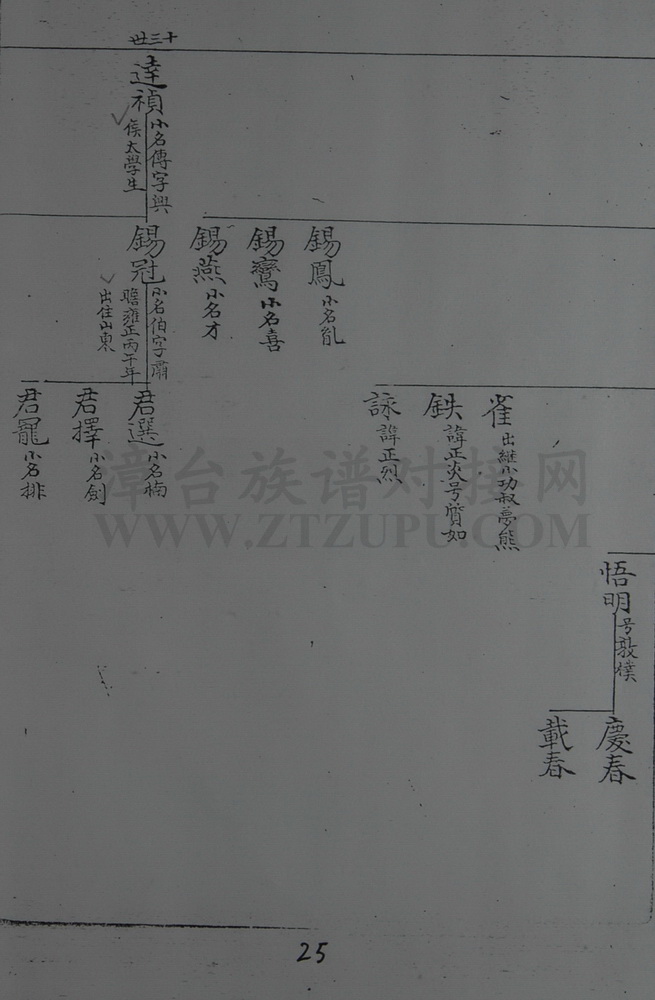 十三世
達禎
小名傳字與
侯大學生
錫鳳
小名能
錫鸞
小名喜
錫燕
小名才
錫冠
小名伯字肅
瞻雍正丙午年
出住山東
雀
出繼小功叔夢熊
鉄
諱正炎号質如
詠
諱正烈
君選
小名楠
君擇
小名劍
君寵
小名排
悟明
号敦樸
慶春
載春
漳台族谱对接网
WWW.ZTZUPU.COM
25